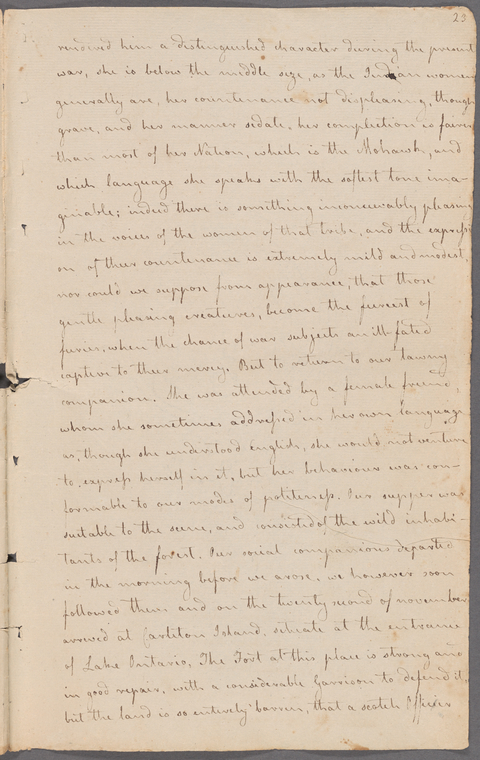 23
rendered him a distinguished character during the present
war, she is below the middle size, as the Indian women
generally are, her countenance not displeasing, though
grave, and her manner sedate. her complection is fairer
than most of her Nation, which is the Mohawk, and
which language she speaks with the softest tone ima-
ginable; indeed there is something inconceivably pleasing
in the voices of the women of that tribe, and the expressi
on of their countenance is extremely mild and modest,
nor could we suppose from appearance, that those
gentle pleasing creatures, become the fiercest of
furies, when the chance of war subjects an ill fated
captive to their mercy. But to return to our tawny
companion. She was attended by a female friend
whom she sometimes addressed in her own language
as, though she understood english, she would not venture
to express herself in it, but her behaviour was con-
formable to our modes of politeness. Our supper was
suitable to the scene, and consisted of the wild inhabi-
tants of the forest. Our social companions departed
in the morning before we arose, we however soon
followed them and on the twenty second of november
arrived at Carleton Island, situate at the entrance
of Lake Ontario, The Fort at this place is strong and
in good repair, with a considerable Garrison to defend it,
but the land is so entirely barren, that a scotch Officer